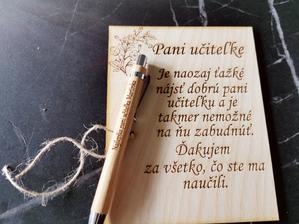 Pani učiteľke
Je naozaj ťažké
nájsť dobrú pani
učiteľku a je
takmer nemožné
na ňu zabudnúť.
Ďakujem
za všetko, čo ste ma
naučili.